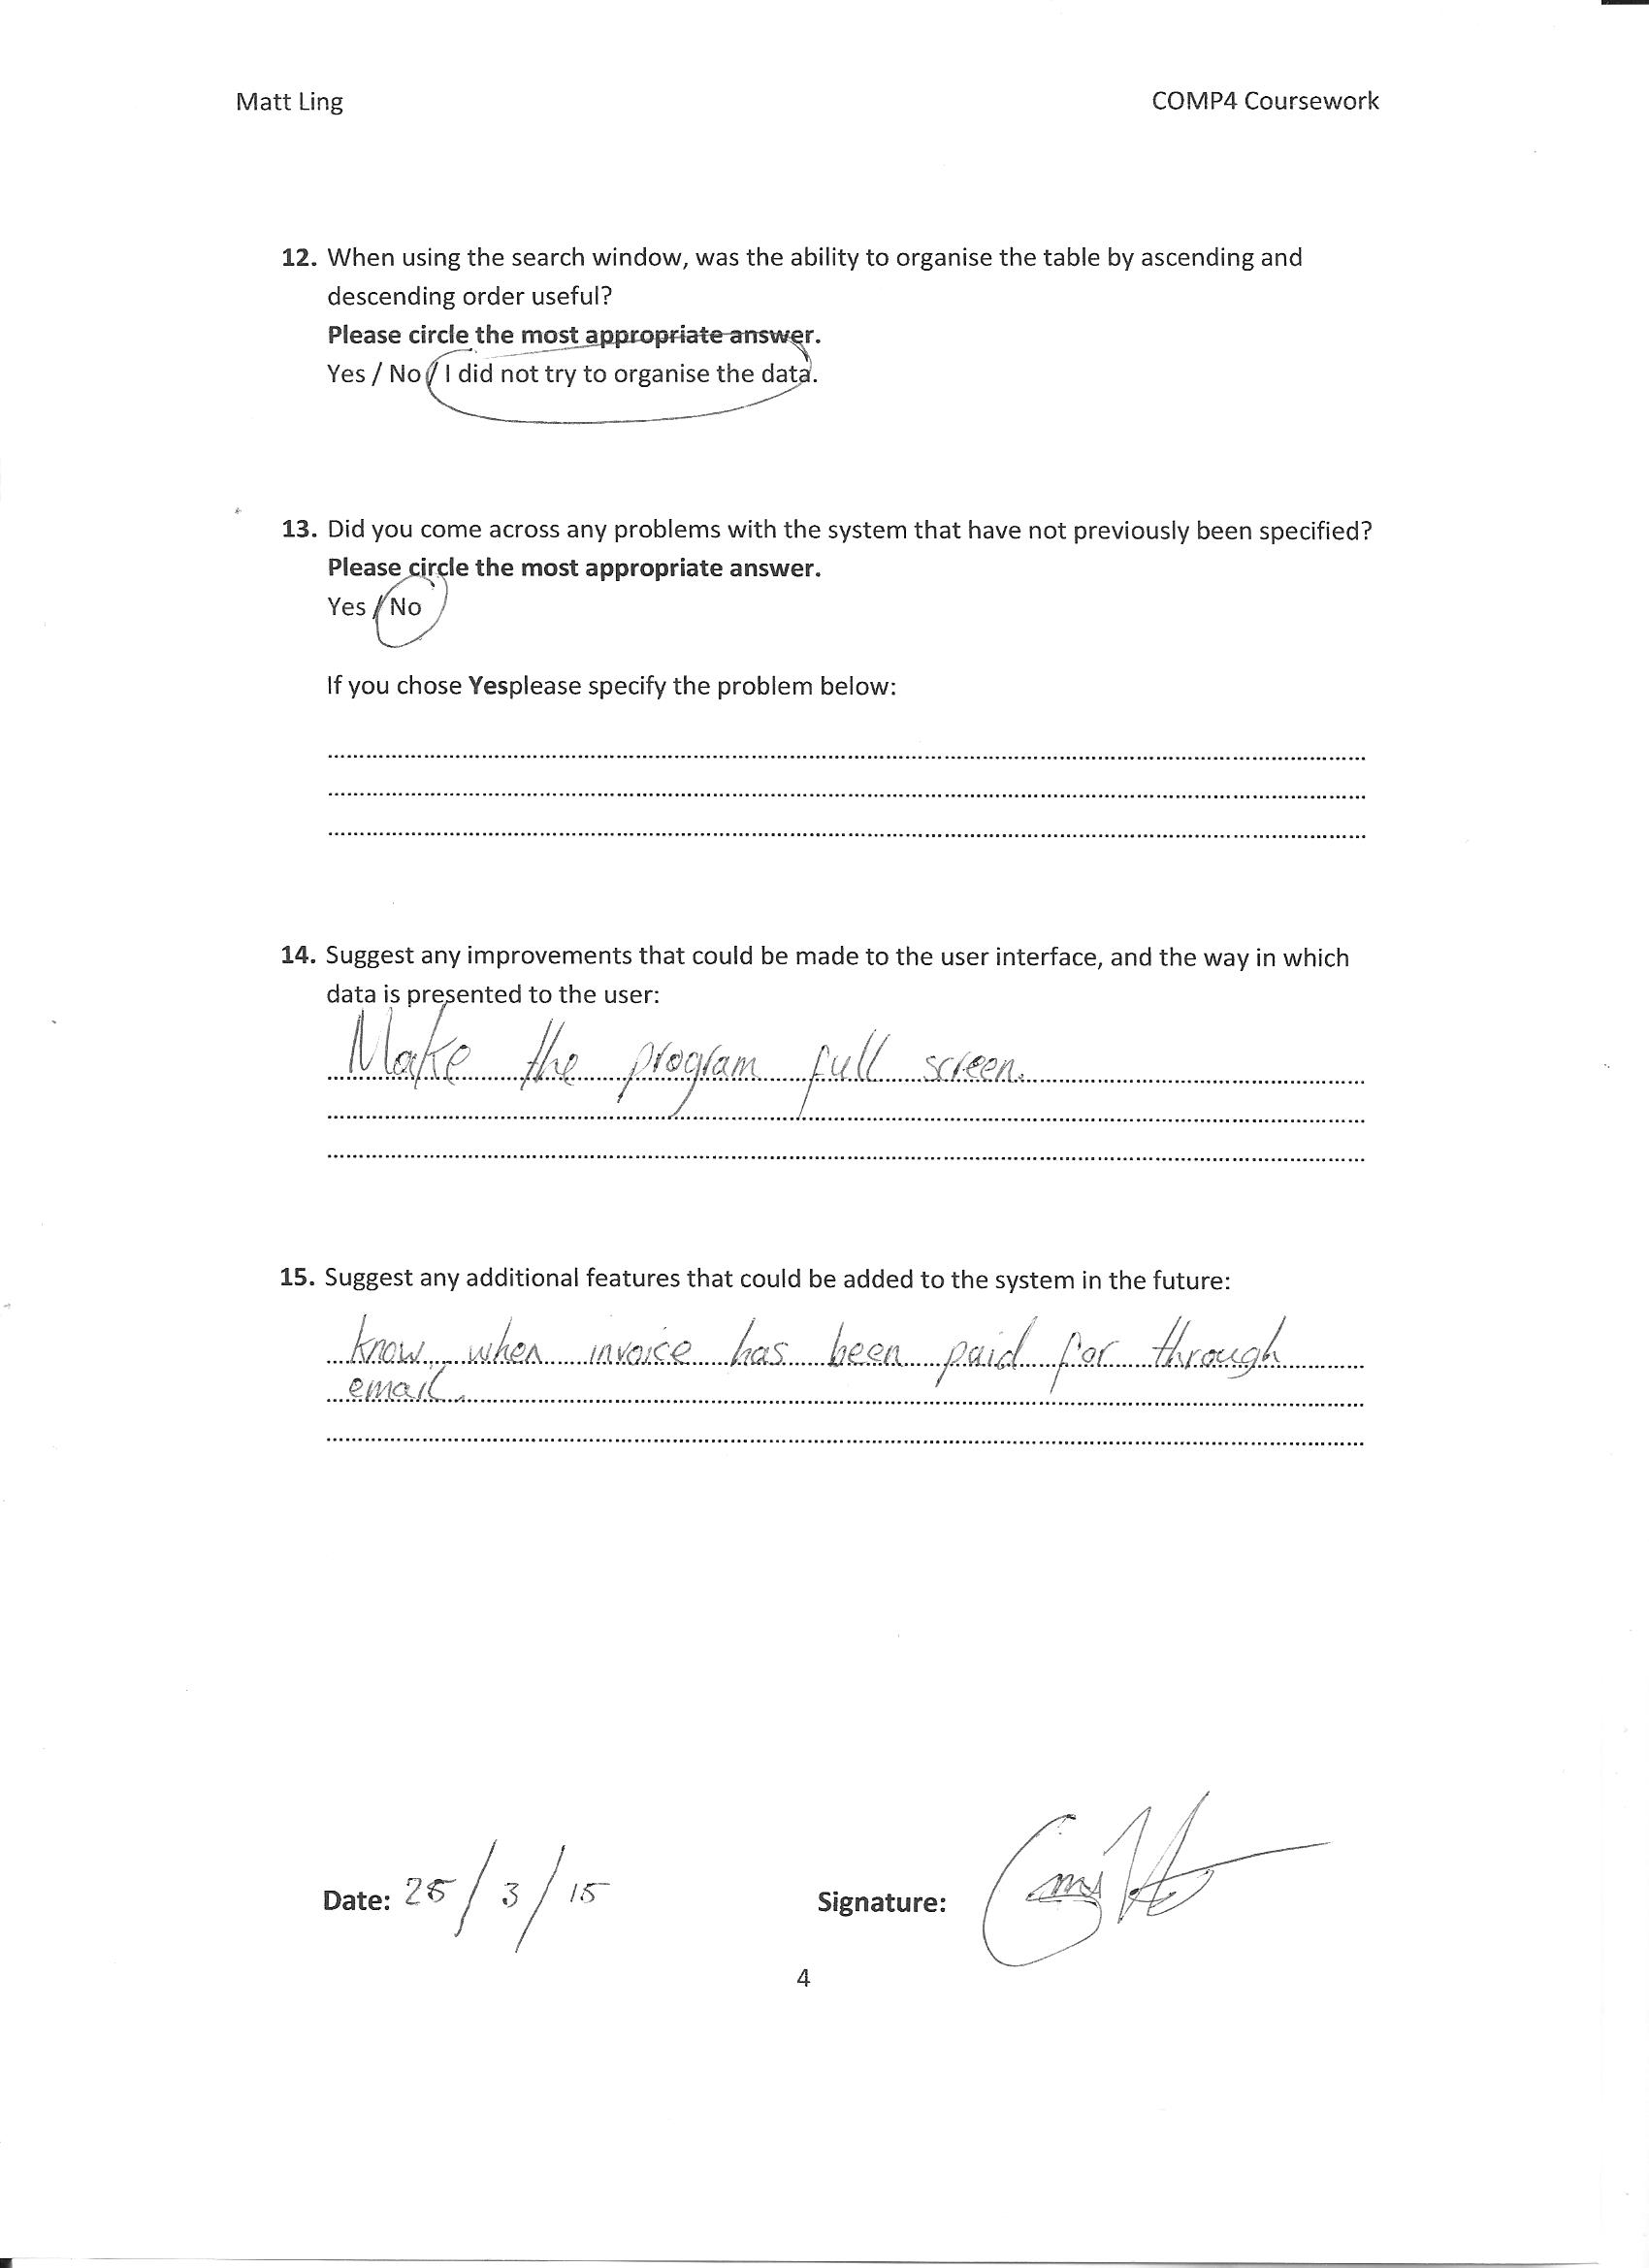 Matt Ling
COMP4 Coursework
12. When using the search window, was the ability to organise the table by ascending and
descending order useful?
Please circle the most appropriate answer.
Yes / No / I did not try to organise the data.
13. Did you come across any problems with the system that have not previously been specified?
Please circle the most appropriate answer.
Yes / No
If you chose Yesplease specify the problem below:
14. Suggest any improvements that could be made to the user interface, and the way in which
data is presented to the user:
Make the program full screen.
15. Suggest any additional features that could be added to the system in the future:
know when invoice has been paid for through
email.
Date: 25/3/15
Signature:
4